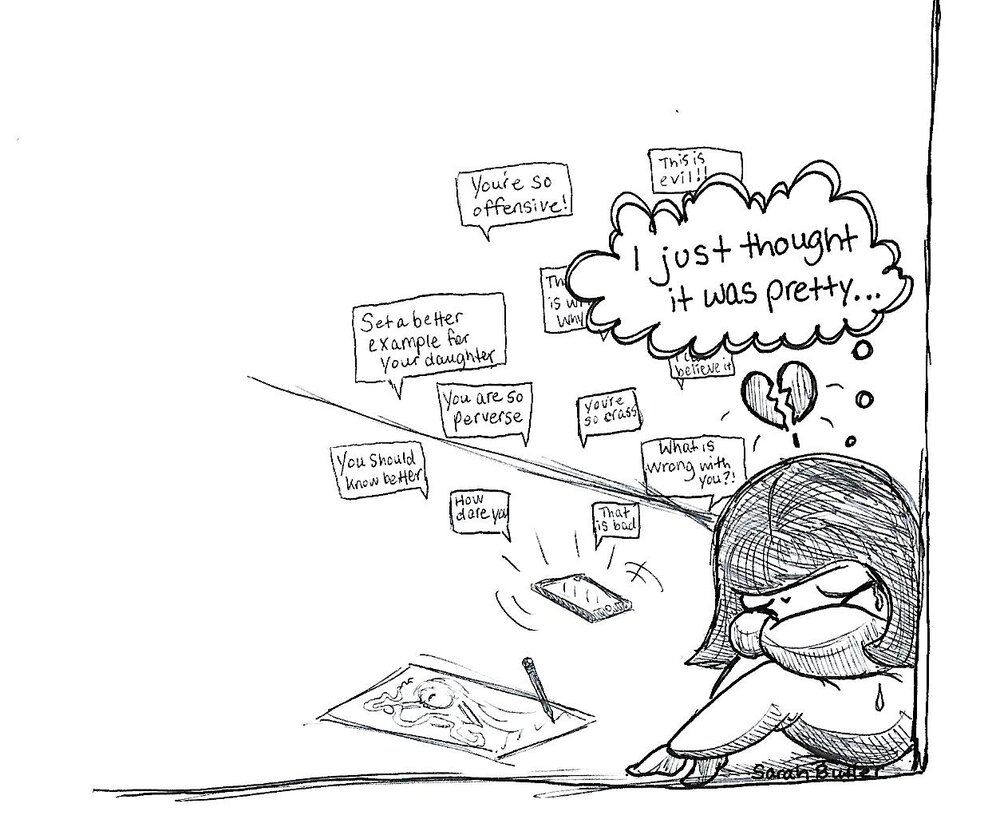 This is
evil!!
You're so
offensive!
I just thought
it was pretty...
is
Why
Set a better
example for
your daughter
believe it
You are so
perverse
you're
so crass
What is
wrong with
you?!
You should
know better
How
dare you
That
is bad
Sarah Butler